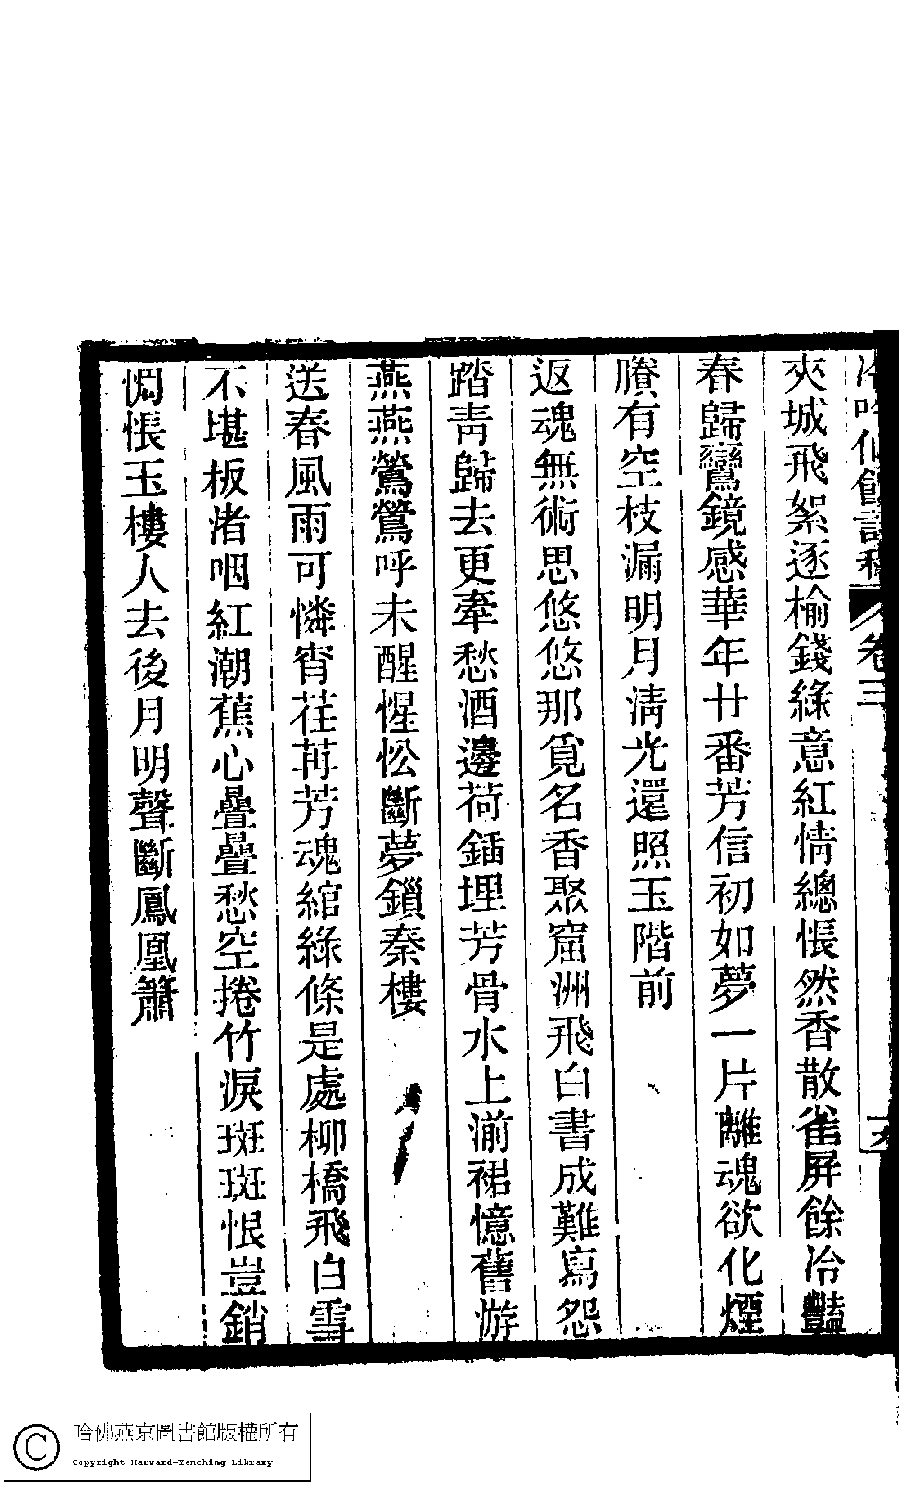 冷吟仙館詩稿 卷三
夾城飛絮逐榆錢綠意紅情總悵然香散雀屏餘冷豔
春歸鸞鏡感華年廿番芳信初如夢一片離魂欲化煙
賸有空枝漏明月淸光還照玉階前
返魂無術思悠悠那覓名香聚窟洲飛白書成難寫怨
踏靑歸去更牽愁酒邊荷鍤埋芳骨水上湔裙憶舊游
燕燕鶯鶯呼未醒惺忪斷夢鎖秦樓
送春風雨可憐宵荏苒芳魂綰綠條是處柳橋飛白雪
不堪板渚咽紅潮蕉心疊疊愁空捲竹淚斑斑恨豈銷
惆悵玉樓人去後月明聲斷鳳凰簫
哈佛燕京圖書館版權所有
Copyright Harvard-Yenching Library